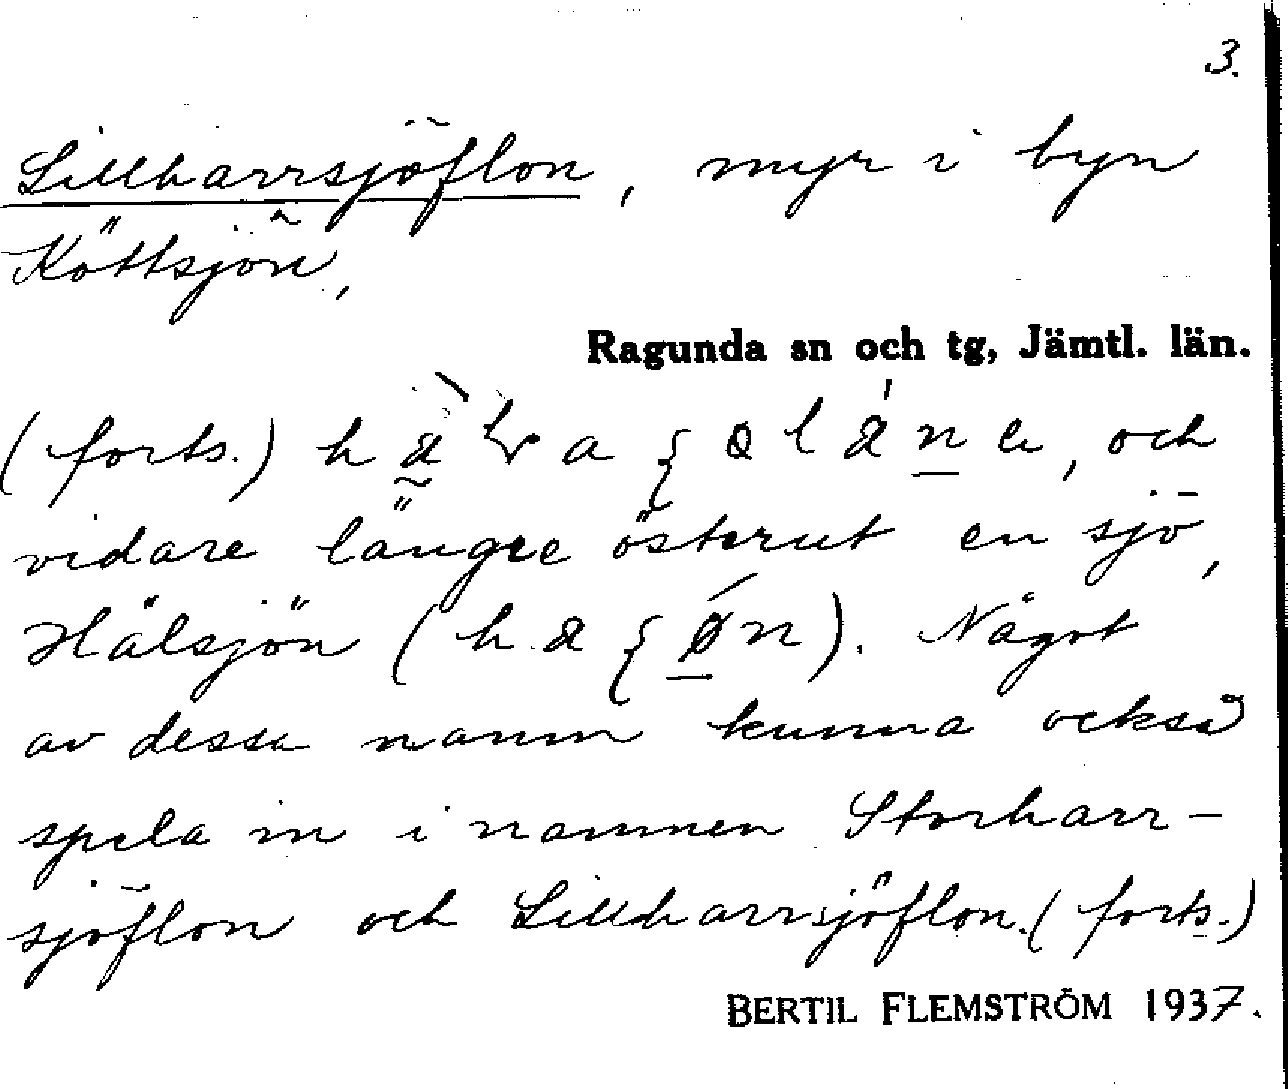 3.
Lillharrsjöflon, myr i byn
Köttsjön,
Ragunda sn och tg, Jämtl. län.
(forts.) och
vidare längre österut en sjö,
Hälsjön ( ). Något
av dessa namn kunna också
spela in i namnen Storharr-
sjöflon och Lillharrsjöflon. (forts.)
BERTIL FLEMSTRÖM 1937.